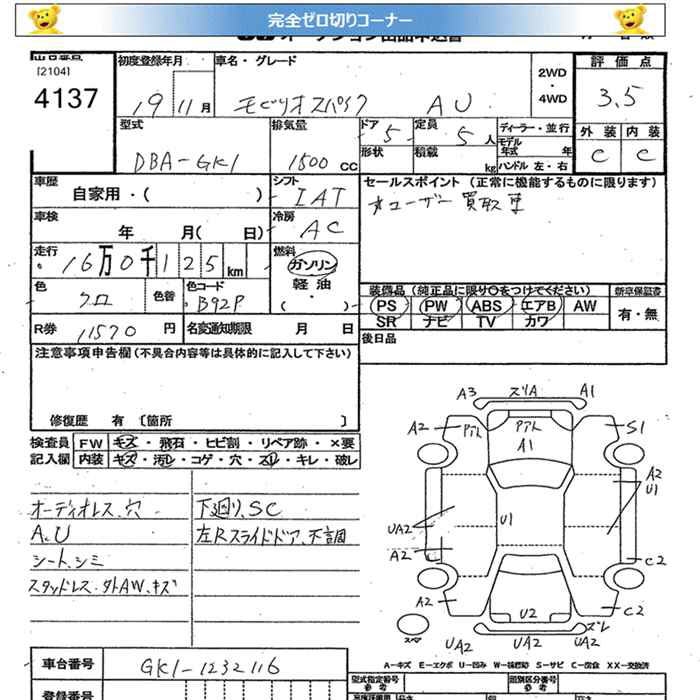 完全ゼロ切りコーナー
[2104]
4137
初度登録年月
19 11月
車名・グレード
モビリオスパイク AU
2WD
・
4WD
評価点
3.5
外装 内装
C C
型式
DBA-GK1
排気量
1500 CC
ドア 5
形状
定員 5人
積載 kg
ディーラー・並行
モデル年式 年
ハンドル 左・右
車歴
自家用・( )
シフト
IAT
セールスポイント (正常に機能するものに限ります)
オユーザー買取車
車検
年 月( 日)
冷房
AC
走行
16万0千125km
燃料
ガソリン
軽油
( )
色
クロ
色替
色コード
B92P
装備品 (純正品に限り○をつけてください)
PS PW ABS エアB AW
SR ナビ TV カワ
新車保証書
有・無
R券 11570円
名変通知期限 月 日
後日品
注意事項申告欄 (不具合内容等は具体的に記入して下さい)
修復歴 有 〔箇所 〕
検査員記入欄
FW キズ・飛石・ヒビ割・リペア跡・×要
内装 キズ・汚レ・コゲ・穴・スレ・キレ・破レ
オーディオレス、穴
A.U
シート、シミ
スタッドレス・外AW、キズ
下廻り、SC
左Rスライドドア、不調
A3 ズリA A1
A2 Pアト Pアト A1 S1
A2 U1
UA2 U1
A2 C2
A2 U2 C2
スペア UA2 UA2 ズレ UA2
A-キズ E-エクボ U-凹み S-サビ C-腐食 XX-交換済
車台番号
GK1-1232116
登録番号
型式指定番号
参考
類別区分番号
参考